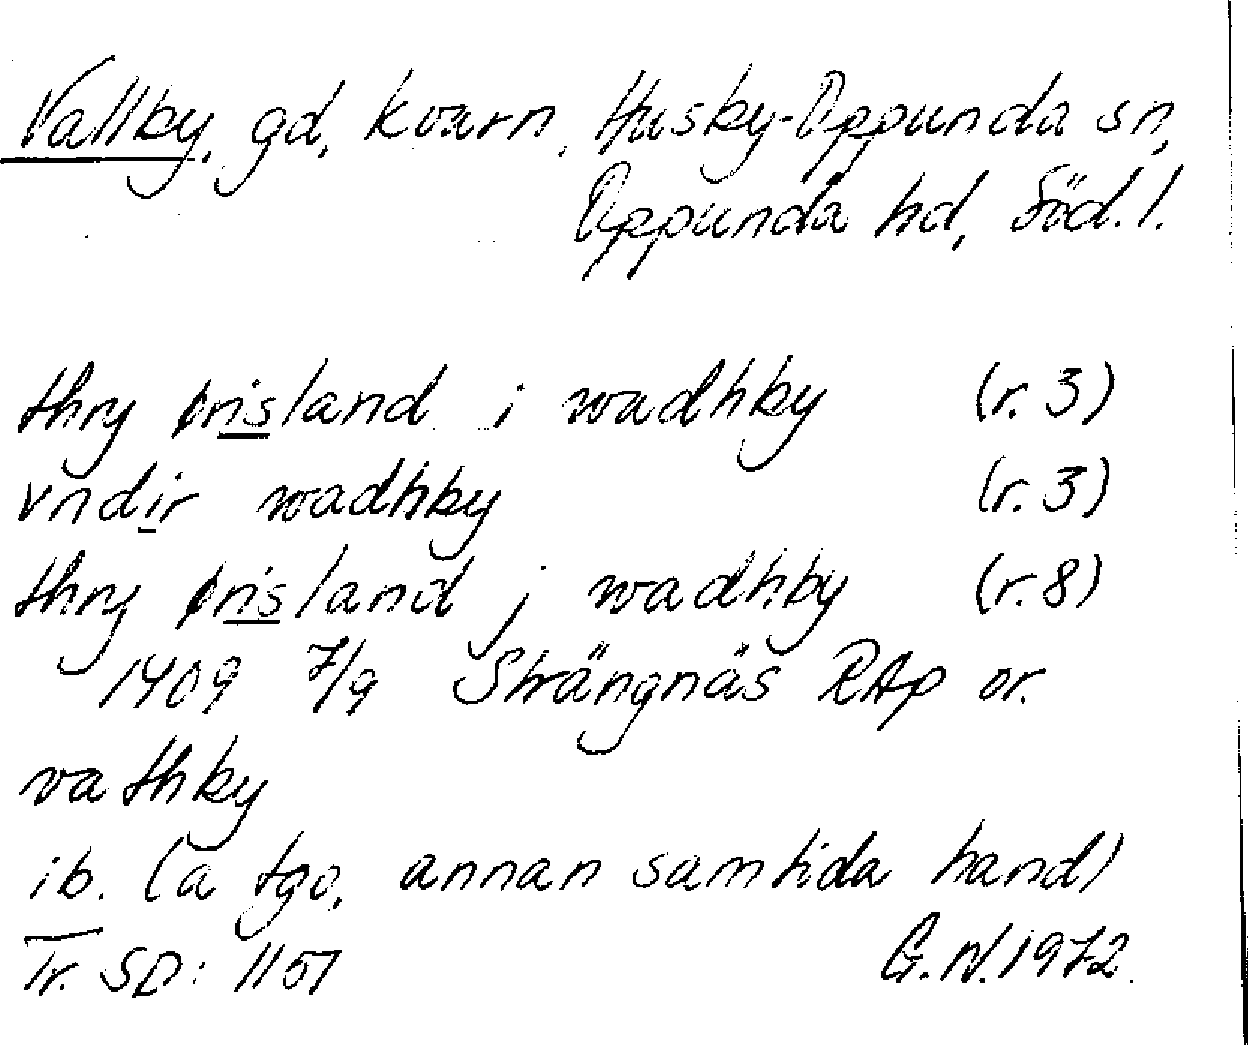 Vallby, gd, kvarn, Husby-Oppunda sn,
Oppunda hd, Söd.l.
thry ørisland i wadhby (r. 3)
vndir wadhby (r. 3)
thry ørisland j wadhby (r. 8)
1409 7/9 Strängnäs RAp or.
vathby
ib. (a tgo, annan samtida hand)
Tr. SD: 1157
G.N. 1972.